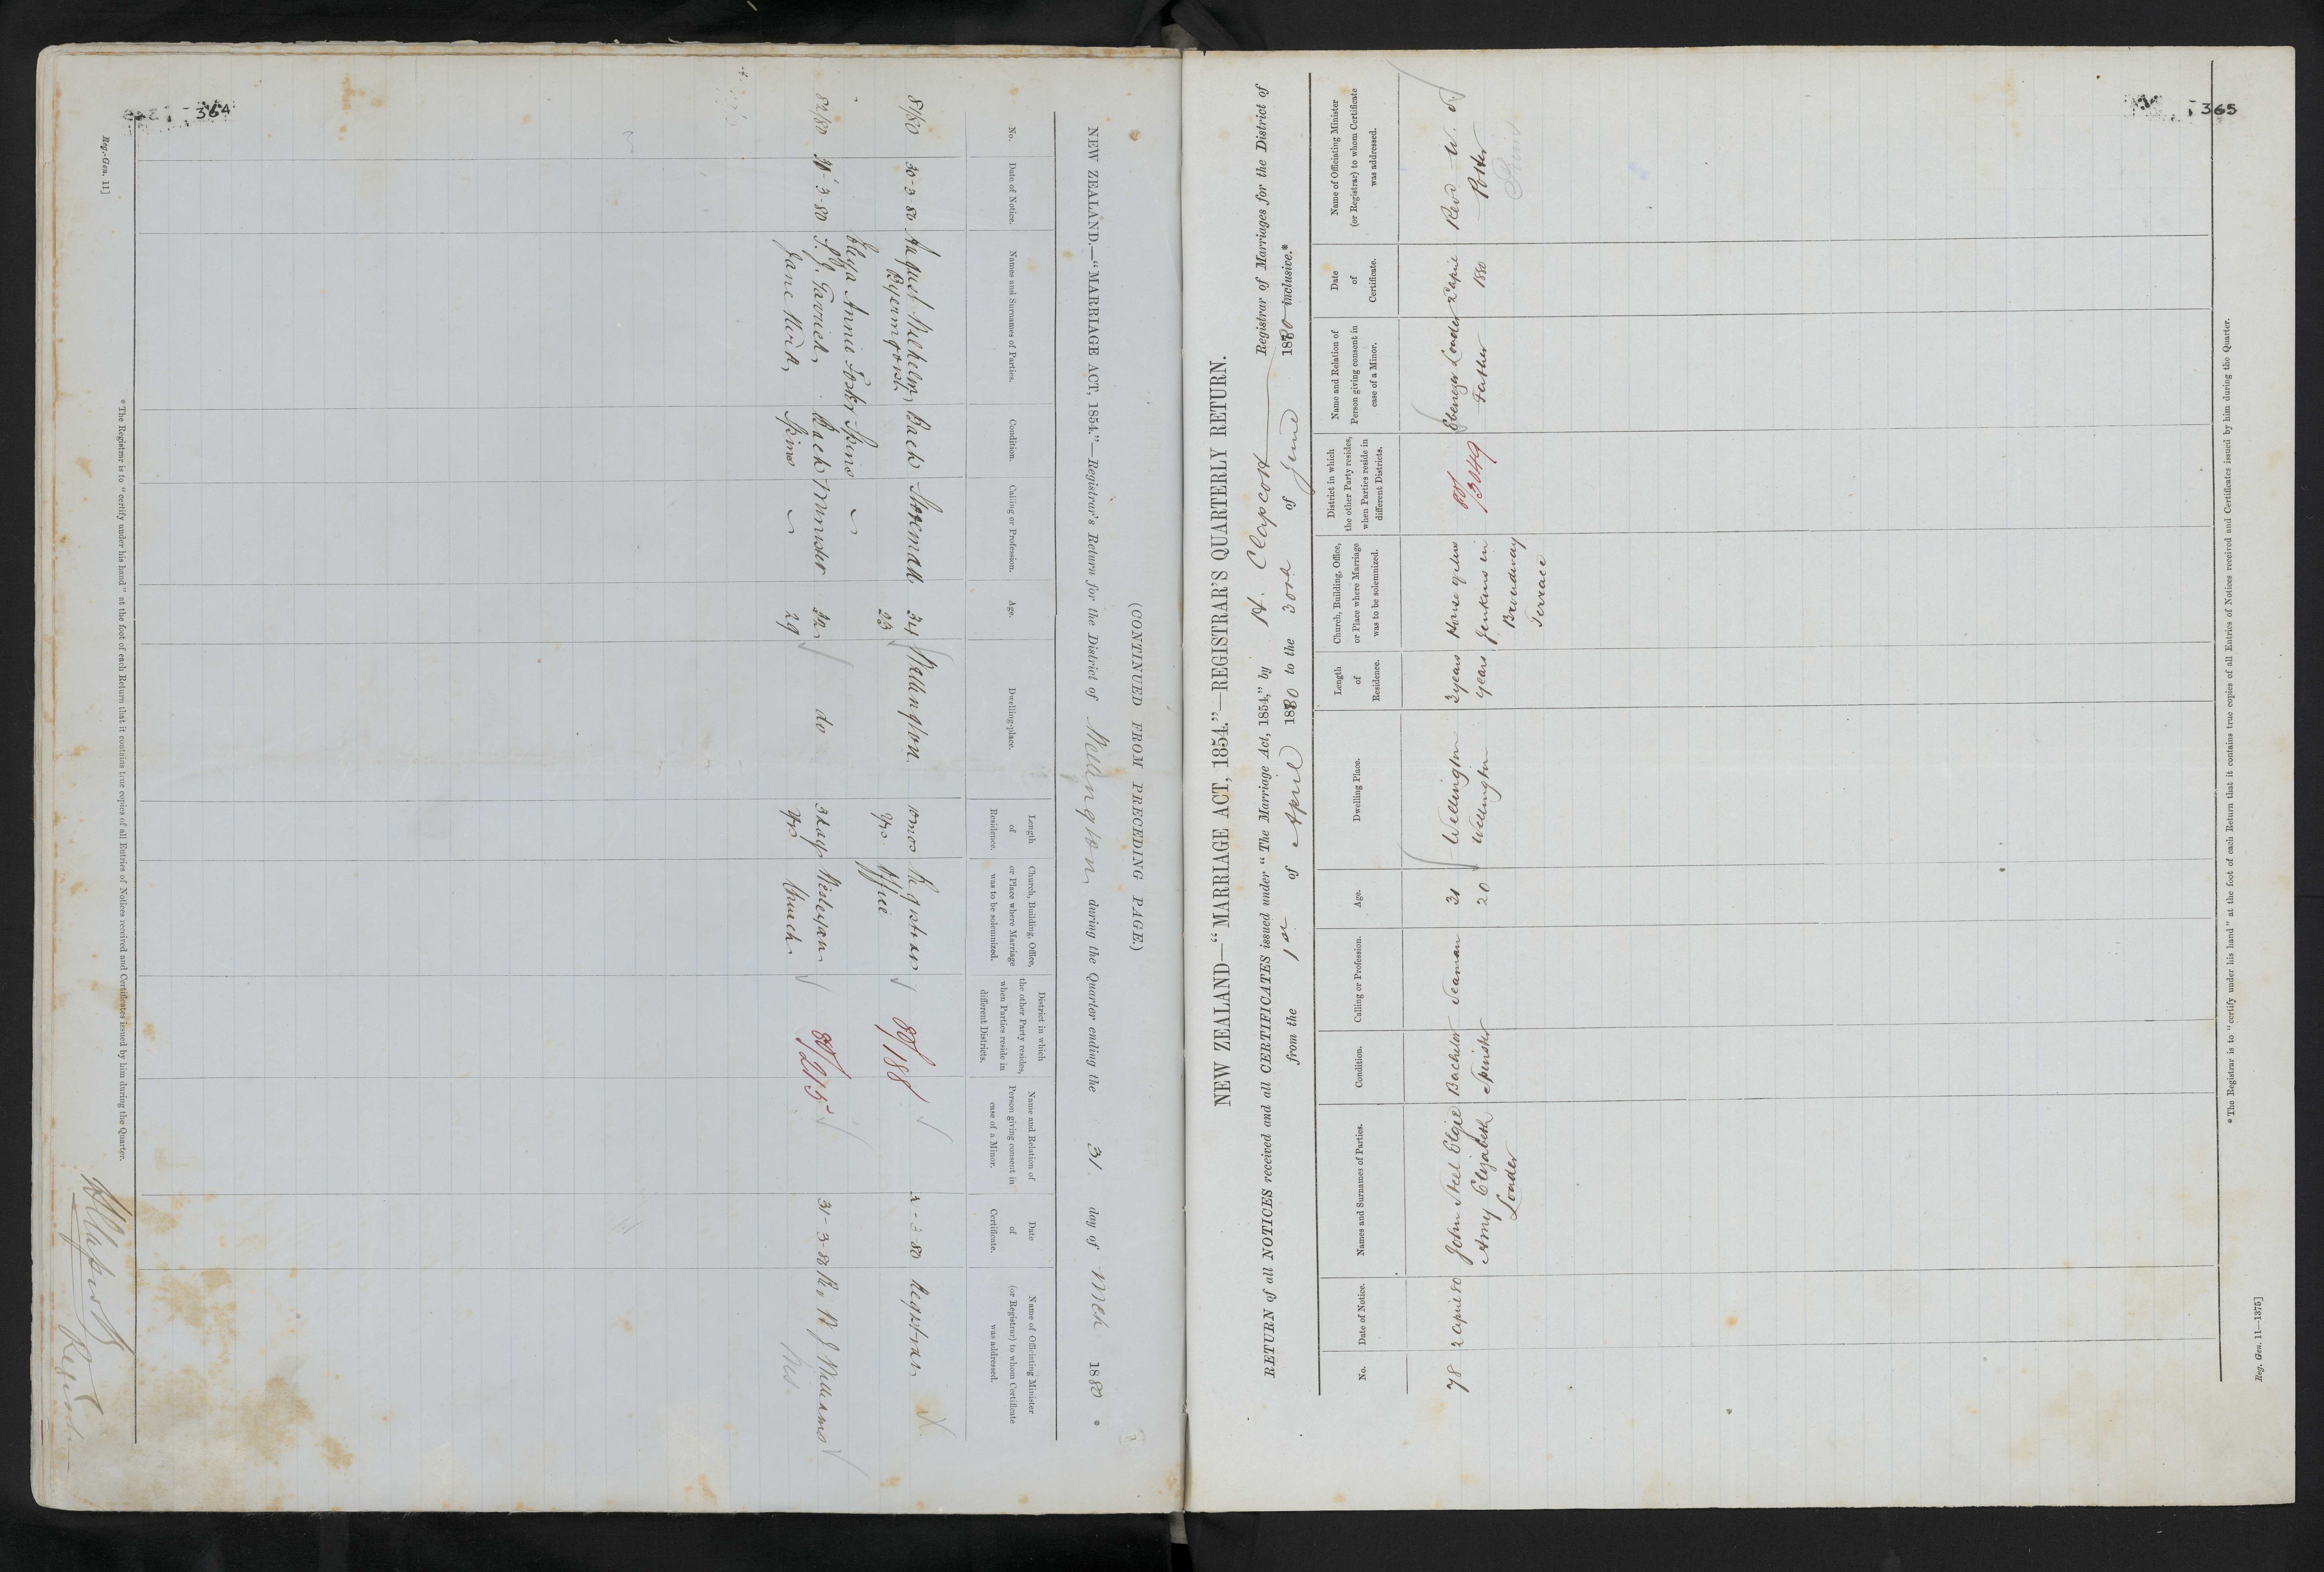 364
(CONTINUED FROM PRECEDING PAGE.)
NEW ZEALAND.—"MARRIAGE ACT, 1854."—Registrar's Return for the District of Wellington during the Quarter ending the 31 day of Mch 1880 *
No.
Date of Notice.
Names and Surnames of Parties.
Condition.
Calling or Profession.
Age.
Dwelling-place.
Length of Residence.
Church, Building, Office, or Place where Marriage was to be solemnized.
District in which the other Party resides, when Parties reside in different Districts.
Name and Relation of Person giving consent in case of a Minor.
Date of Certificate.
Name of Officiating Minister (or Registrar) to whom Certificate was addressed.
81/80 30-3-80 August Wilhelm Bach Storeman 34 Wellington 10 mos Registrar 80/188 -3-80 Registrar
23 yrs Office
Eliza Annie Foster Spins
82/80 31-3-80 S. J. Bach Minister 32 do 3 days Wesleyan 80/215 31-3-80 Rev W J Williams
Jane Spins 29 yrs Church Wes.
* The Registrar is to "certify under his hand" at the foot of each Return that it contains true copies of all Entries of Notices received and Certificates issued by him during the Quarter.
Reg.-Gen. 11]
Registrar
365
NEW ZEALAND—"MARRIAGE ACT, 1854."—REGISTRAR'S QUARTERLY RETURN.
RETURN of all NOTICES received and all CERTIFICATES issued under "The Marriage Act, 1854," by H. Clapcott Registrar of Marriages for the District of
from the 1st of April 1880 to the 30th of June 1880 inclusive.*
No.
Date of Notice.
Names and Surnames of Parties.
Condition.
Calling or Profession.
Age.
Dwelling Place.
Length of Residence.
Church, Building, Office, or Place where Marriage was to be solemnized.
District in which the other Party resides, when Parties reside in different Districts.
Name and Relation of Person giving consent in case of a Minor.
Date of Certificate.
Name of Officiating Minister (or Registrar) to whom Certificate was addressed.
78 2 April 80 John Steel Elgie Bachelor Seaman 31 Wellington 2 years House of Mrs 80/3049 Ebenezer Loader 2 April Rev W. J.
Amy Elizabeth Spinster 20 Wellington years Jenkins in Father 1880 Potter
Loader Broadway
Terrace
* The Registrar is to "certify under his hand" at the foot of each Return that it contains true copies of all Entries of Notices received and Certificates issued by him during the Quarter.
Reg. Gen. 11—1375]